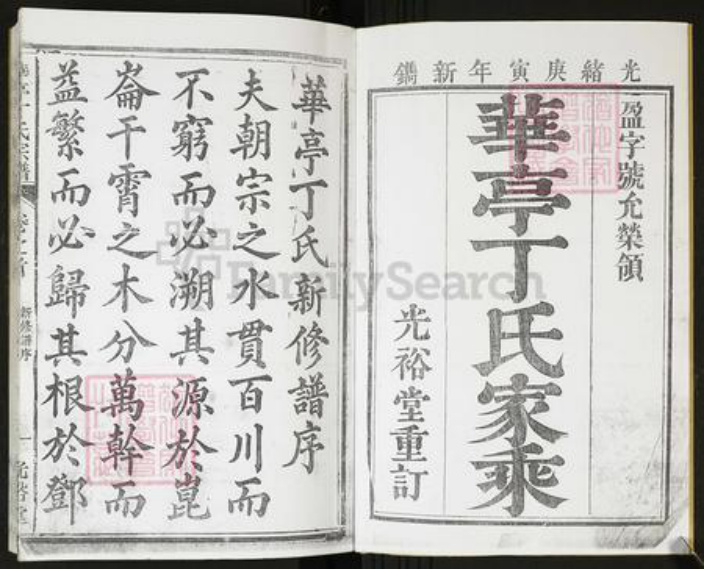 光緒庚寅年新鐫
盈字號允榮領
華亭丁氏家乘
光裕堂重訂
華亭丁氏新修譜序
夫朝宗之水貫百川而
不窮而必溯其源於崑
崙干霄之木分萬幹而
益繁而必歸其根於鄧
新修譜序
一
光裕堂
FamilySearch